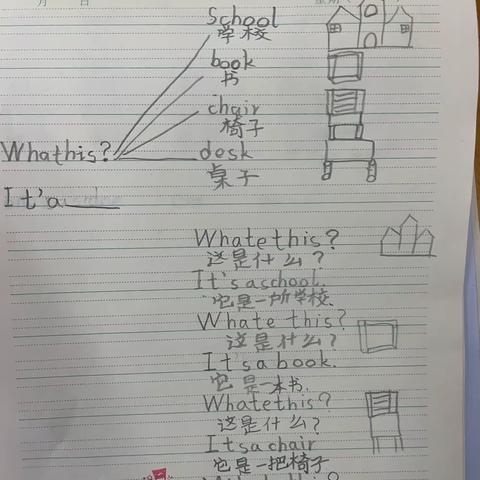 月 日
School
学校
book
书
chair
椅子
Whathis?
desk
桌子
It'a
Whatethis?
这是什么?
It's aschool.
它是一所学校.
Whate this?
这是什么?
It'sa book.
它是一本书.
Whatethis?
这是什么?
Itsachair
它是一把椅子